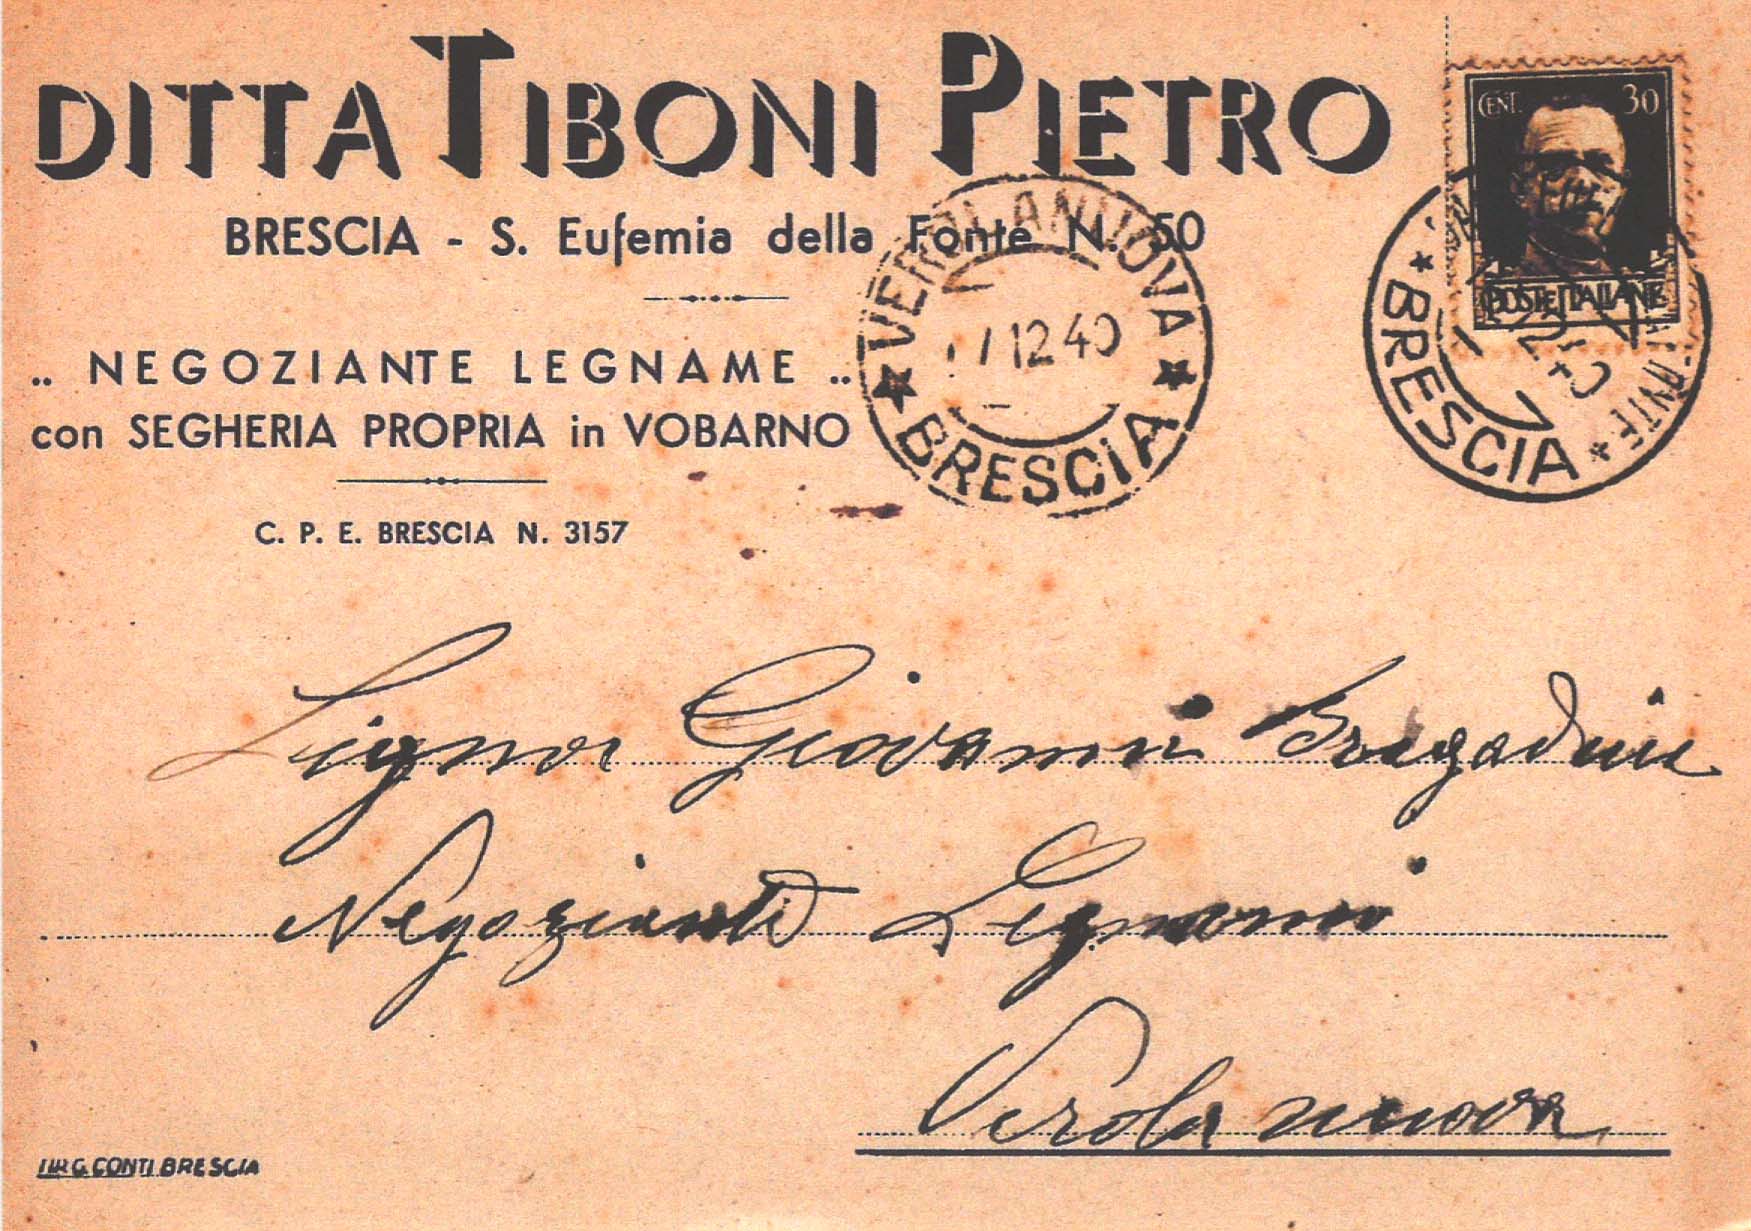 DITTA TIBONI PIETRO
BRESCIA - S. Eufemia della Fonte N. 50
.. NEGOZIANTE LEGNAME ..
con SEGHERIA PROPRIA in VOBARNO
C. P. E. BRESCIA N. 3157
CENT. 30
POSTE ITALIANE
VEROLANNUOVA
12 40
* BRESCIA *
* BRESCIA *
Signor Giovanni Bragadini
Negoziante Legnami
Verolanuova
G. CONTI BRESCIA